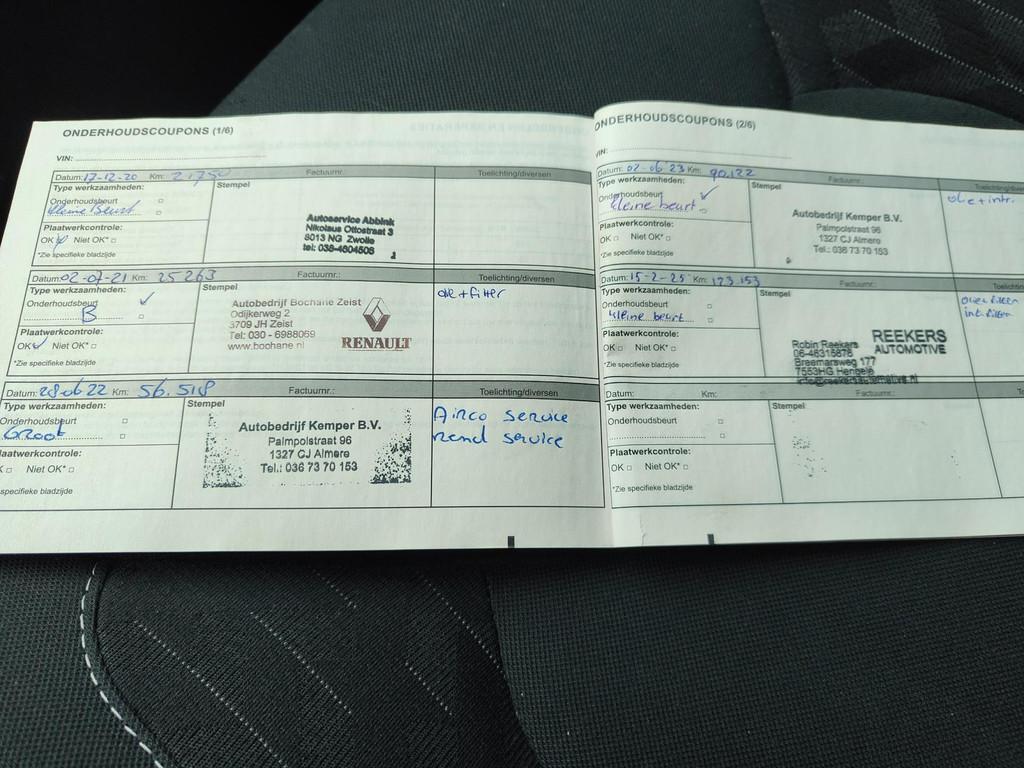 ONDERHOUDSCOUPONS (1/6)
VIN:
Datum: 17-12-20 Km: 21,750 Factuurnr.: Toelichting/diversen
Type werkzaamheden: Stempel
Onderhoudsbeurt
kleine beurt
Plaatwerkcontrole:
OK Niet OK*
*Zie specifieke bladzijde
Autoservice Abbink
Nikolaus Ottostraat 3
8013 NG Zwolle
tel: 038-4604506
Datum: 02-07-21 Km: 25263 Factuurnr.: Toelichting/diversen
Type werkzaamheden: Stempel
Onderhoudsbeurt
B
Plaatwerkcontrole:
OK Niet OK*
*Zie specifieke bladzijde
Autobedrijf Bochane Zeist
Odijkerweg 2
3709 JH Zeist
Tel: 030 - 6988069
www.bochane.nl
RENAULT
olie+filter
Datum: 28 06 22 Km: 56.518 Factuurnr.: Toelichting/diversen
Type werkzaamheden: Stempel
Onderhoudsbeurt
Groot
laatwerkcontrole:
K Niet OK*
specifieke bladzijde
Autobedrijf Kemper B.V.
Palmpolstraat 96
1327 CJ Almere
Tel.: 036 73 70 153
Airco service
Rend service
ONDERHOUDSCOUPONS (2/6)
VIN:
Datum: 02-06 23 Km: 90,122 Factuurnr.: Toelichting/div
Type werkzaamheden: Stempel
Onderhoudsbeurt
kleine beurt
Plaatwerkcontrole:
OK Niet OK*
*Zie specifieke bladzijde
Autobedrijf Kemper B.V.
Palmpolstraat 96
1327 CJ Almere
Tel.: 036 73 70 153
olie + intr.
Datum: 15-2-25 Km: 123.153 Factuurnr.: Toelichting/div
Type werkzaamheden: Stempel
Onderhoudsbeurt
kleine beurt
Plaatwerkcontrole:
OK Niet OK*
*Zie specifieke bladzijde
REEKERS
AUTOMOTIVE
Robin Reekers
06-46316876
Breemarsweg 177
7553HG Hengelo
Datum: Km: Factuurnr.:
Type werkzaamheden: Stempel
Onderhoudsbeurt
Plaatwerkcontrole:
OK Niet OK*
*Zie specifieke bladzijde